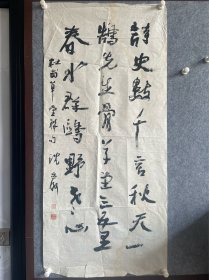 詩史數千言秋天一
鵠先生骨草堂三五里
春水群鷗野老心
杜甫草堂聯句 沈